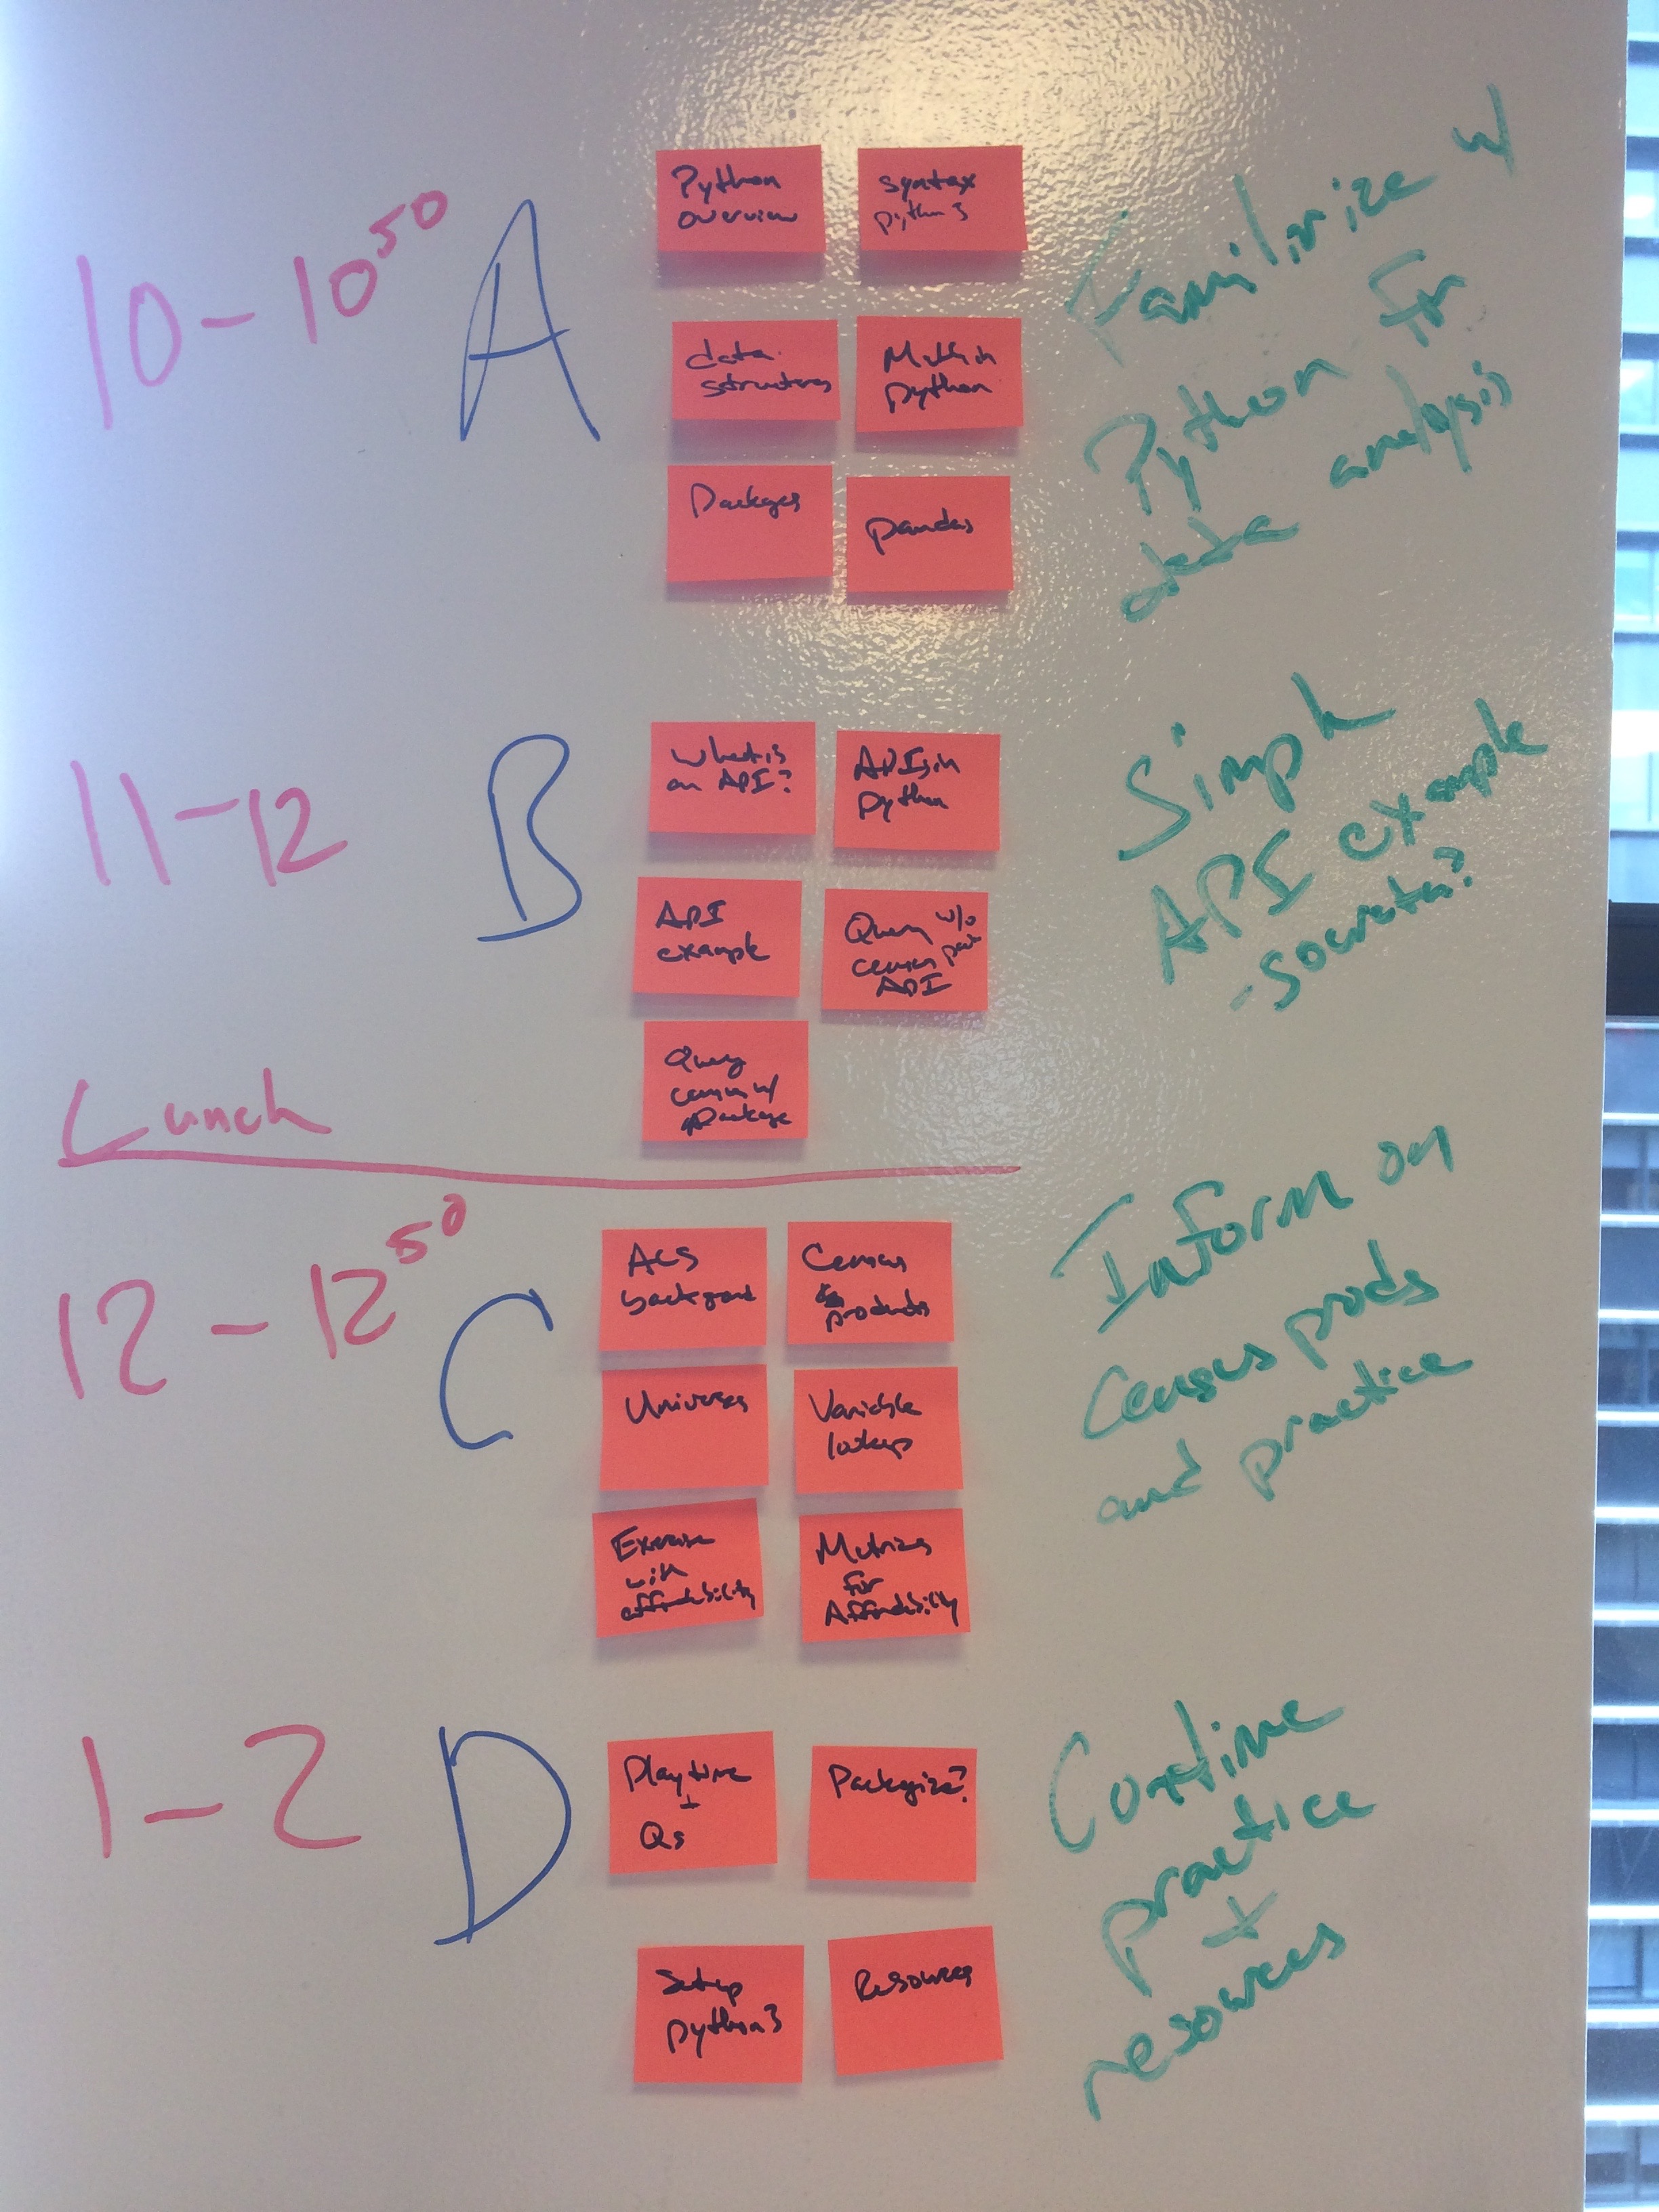 10 - 10 50
A
Python
overview
syntax
python 3
data
structures
Math in
python
Packages
pandas
Familirize w/
Python for
data analysis
11 - 12
B
What is
an API?
APIs in
python
API
example
Query w/o
census pack
API
Query
census w/
Package
Simple
API example
- socrata?
Lunch
12 - 12 50
C
ACS
background
Census
products
Universes
Variable
lookup
Exercise
with
affordability
Metrics
for
Affordability
Inform on
Census prods
and practice
1 - 2
D
Playtime
+
Qs
Packagize?
Setup
python3
Resources
Continue
practice
+
resources